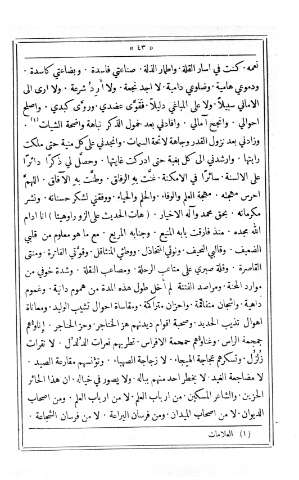 « ٤٣ »
نعمه. كنت في اسار القلة. واطمار الذلة. صناعتي فاسدة. وبضاعتي كاسدة.
ودموعي هامية. وضلوعي دامية. لا اجد نجعة. ولا أرد شرعة. ولا ارى الى
الاماني سبيلاً ولا على المباغي دليلاً. فقوّى عضدي. وروى كبدي. واصلح
احوالي. وانجح آمالي. وافادني بعد خمول الذكر نباهة واضحة الشيات (١)
وزادني بعد نزول القدر وجاهة لائحة السمات. وانجدني على كل منية حتى ملكت
رايتها. وارشدني الى كل بغية حتى ادركت غايتها. وحصل لي ذكرا دائرا
على الالسنة. سائرا في الامكنة. غنت به الرفاق. وطنت به الآفاق. اللهم
احرس مهجته. مهجة العلم والوفاء. والحلم والحياء. ووفقني لشكر حسناته. ونشر
مكرماته. بحق محمد وآله الاخيار. (هات الحديث على الزوراوهيتا) انا ادام
الله مجده. منذ فارقت بابه المنيع. وجنابه المريع. مع ما هو معلوم من قلبي
الضعيف. وقالبي النحيف. ونوقي التخاذل. ووطئي المتثاقل. وقوتي الفاترة. ومنتي
القاصرة. وقلة صبري على متاعب الرحلة. ومصاعب النقلة. وشدة خوفي من
موارد المحنة. ومراصد الفتنة لم اخل طول هذه المدة من هموم داهمة. وغموم
داهية. واشجان متفاقمة. واحزان متراكمة. ومقاساة احوال تشيب الوليد. ومعاناة
اهوال تذيب الحديد. وصحبة اقوام ديدنهم هز الخناجر. وحز الحناجر. اناؤهم
جمجمة الراس. وغناؤهم حمحمة الافراس. تطربهم نعرات الدلدل. لا نقرات
زلزل. وتسكرهم عجاجة الهيجاء. لا زجاجة الصهباء. وتؤنسهم مقارعة الصيد.
لا مضاجعة الغيد. لا يخطر احد منهم بباله. ولا يصور في خياله. ان هذا الحائر
الحزين. والشاعر المسكين. من ارباب العلم. لا من ارباب العلم. ومن اصحاب
الديوان. لا من اصحاب الميدان. ومن فرسان اليراعة. لا من فرسان الشجاعة.
(١) العلامات